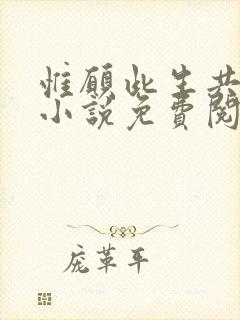 惟愿此生共
小说免费阅
庞革平